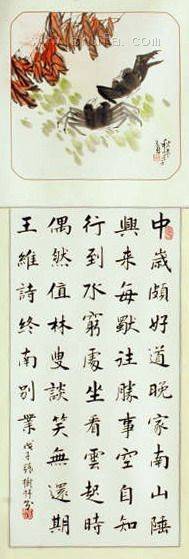 中歲頗好道晚家南山陲
興來每獨往勝事空自知
行到水窮處坐看雲起時
偶然值林叟談笑無還期
王維詩終南別業戊子